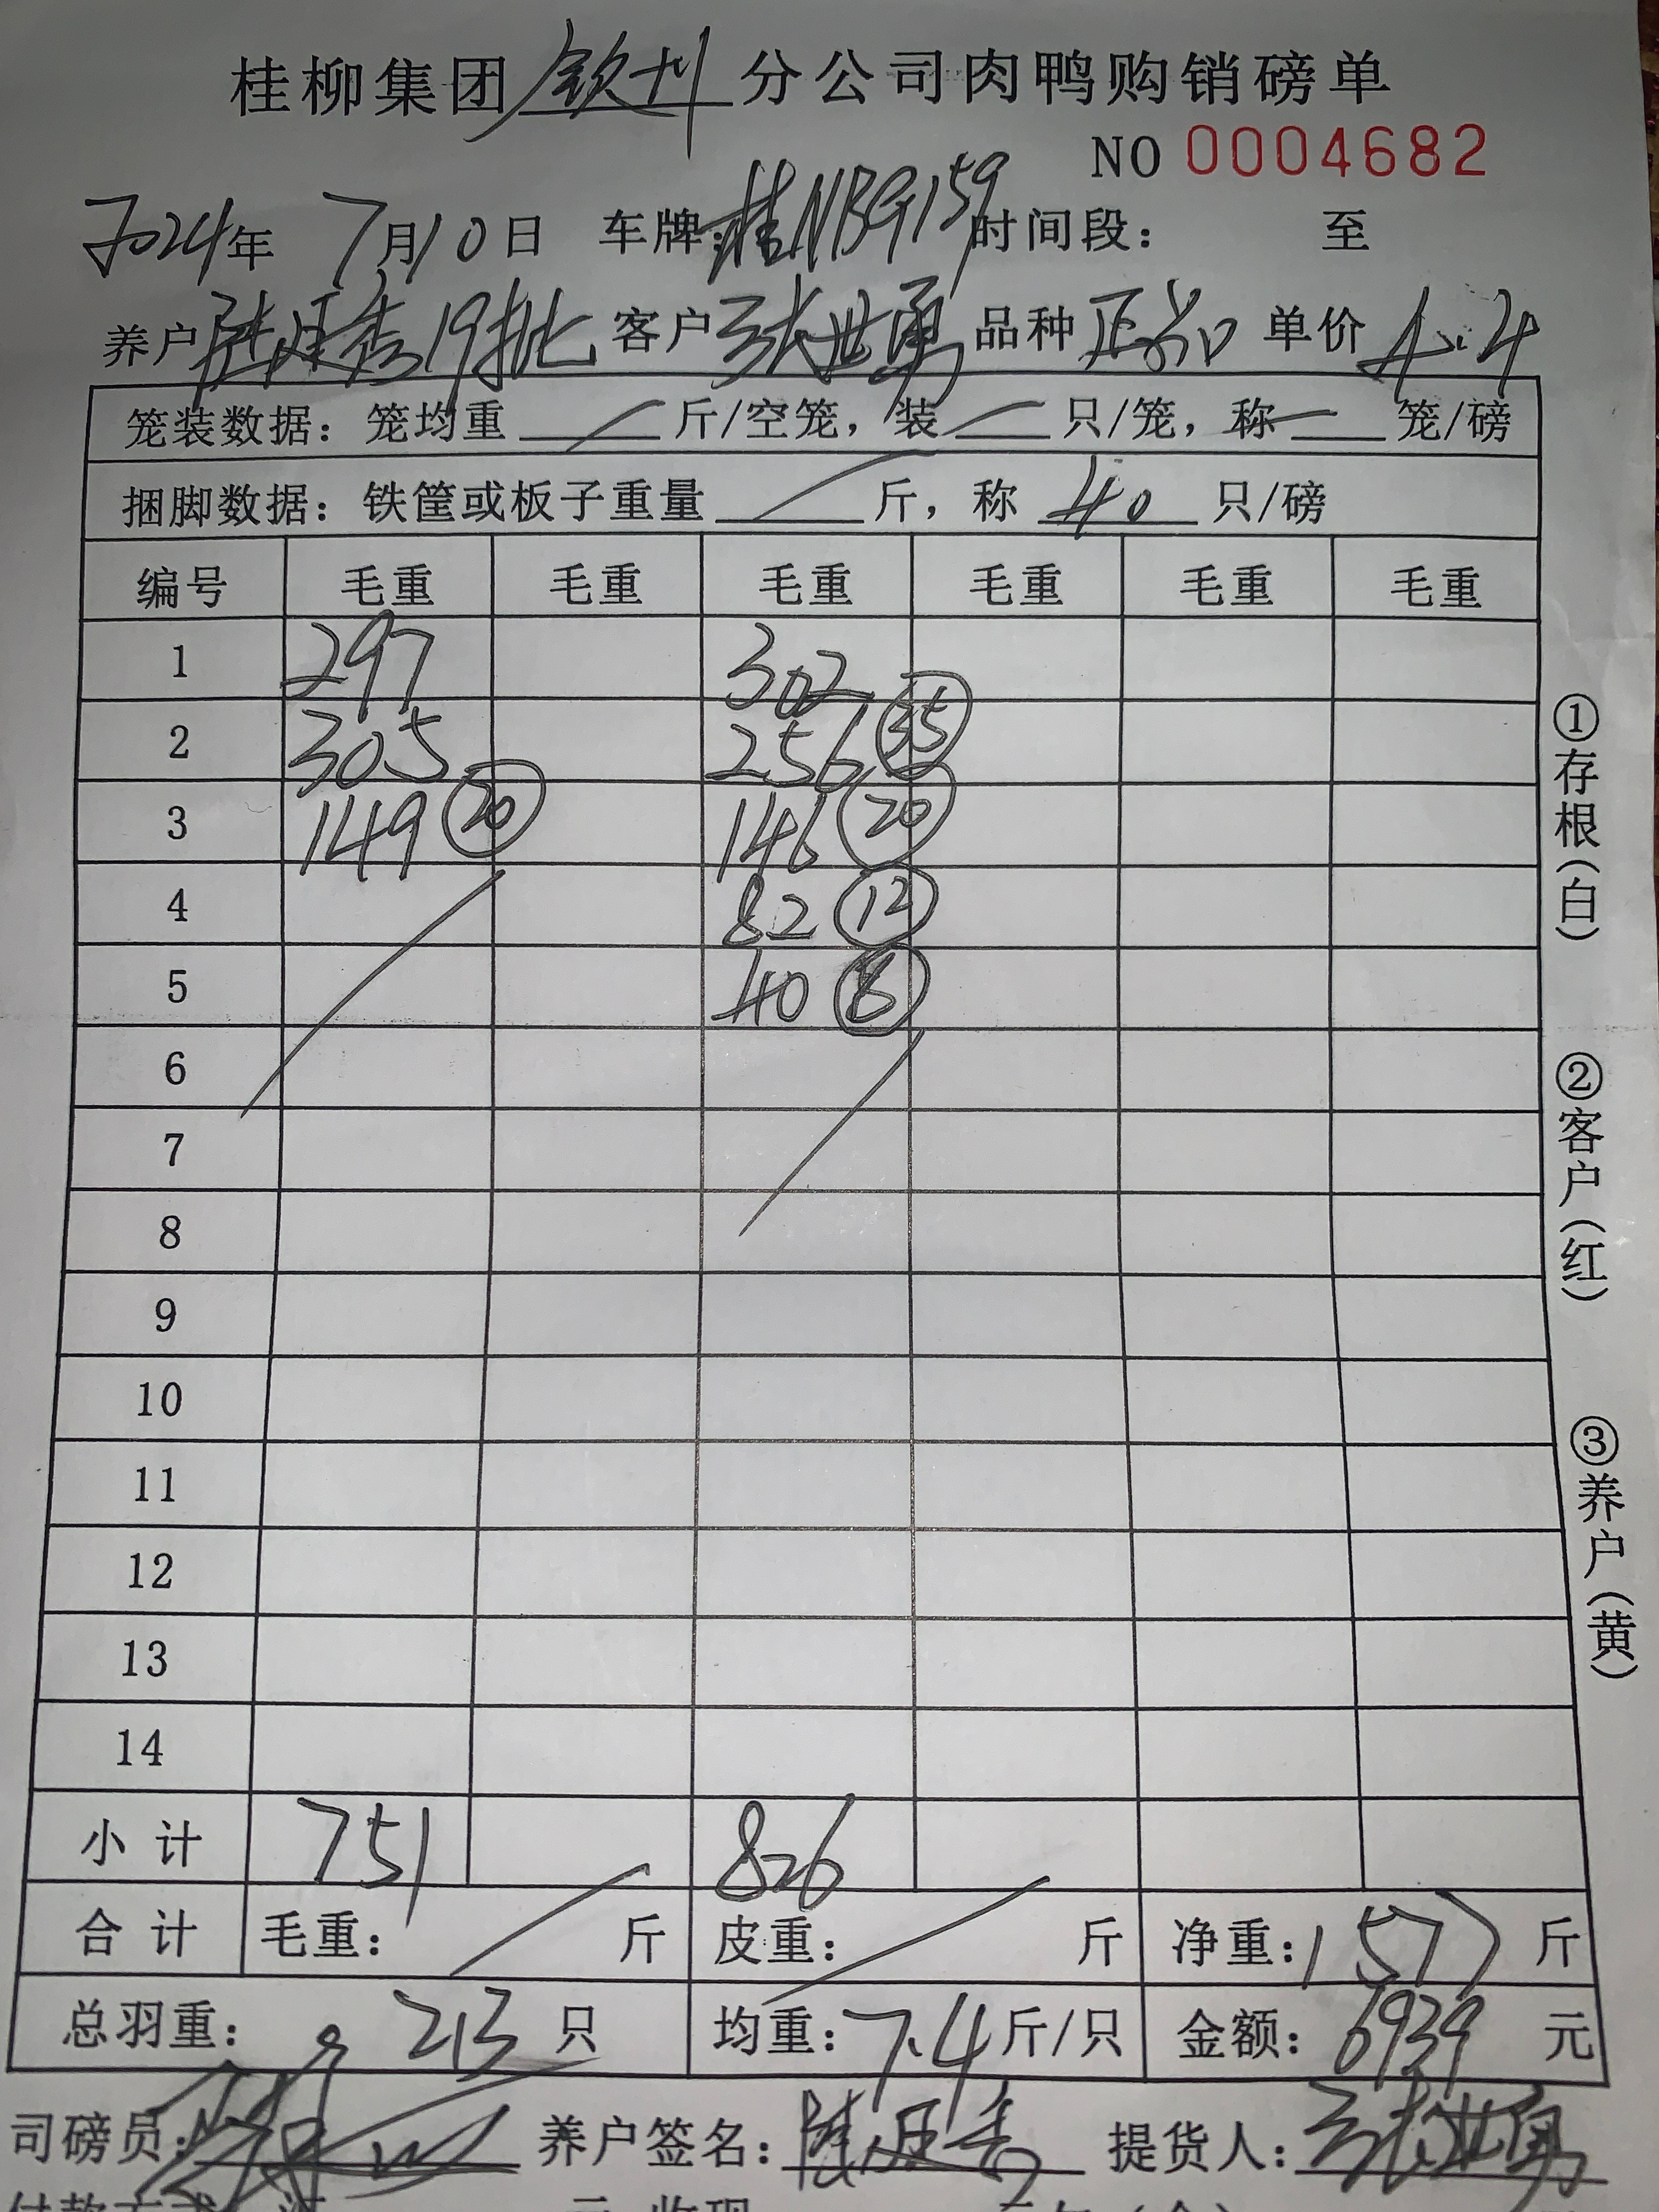 桂柳集团钦州分公司肉鸭购销磅单
NO 0004682
2024年 7月10日 车牌:桂NBG159 时间段: 至
养户 陆 秀19批 客户 张世勇 品种 正品 单价 4.4
笼装数据: 笼均重 斤/空笼, 装 只/笼, 称 笼/磅
捆脚数据: 铁筐或板子重量 斤, 称 40 只/磅
编号 毛重 毛重 毛重 毛重 毛重 毛重
1 297 302
2 305 256 35
3 149 20 146 20
4 82 12
5 40 6
6
7
8
9
10
11
12
13
14
小计 751 826
合计 毛重: 斤 皮重: 斤 净重: 1577 斤
总羽重: 213 只 均重: 7.4 斤/只 金额: 6939 元
司磅员: 养户签名: 陆 秀 提货人: 张世勇
①存根(白)
②客户(红)
③养户(黄)